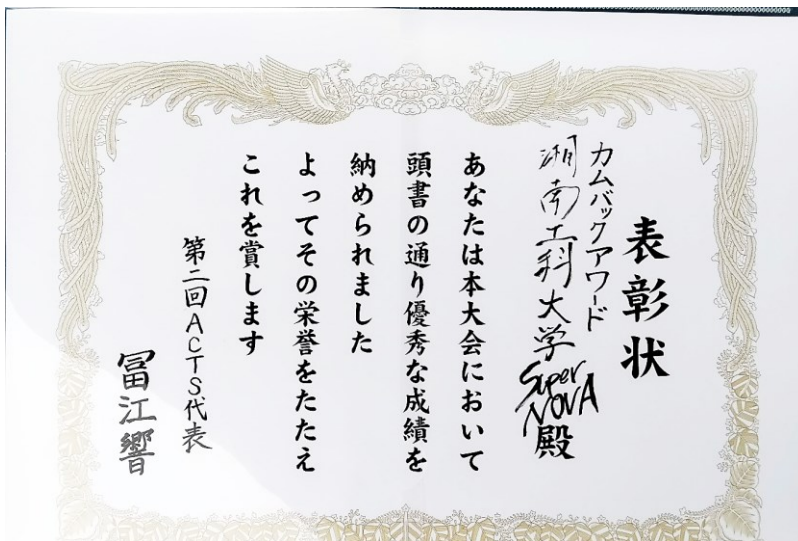 表彰状
カムバックアワード
湘南工科大学
Super
NOVA
殿
あなたは本大会において
頭書の通り優秀な成績を
納められました
よってその栄誉をたたえ
これを賞します
第二回ACTS代表
冨江響